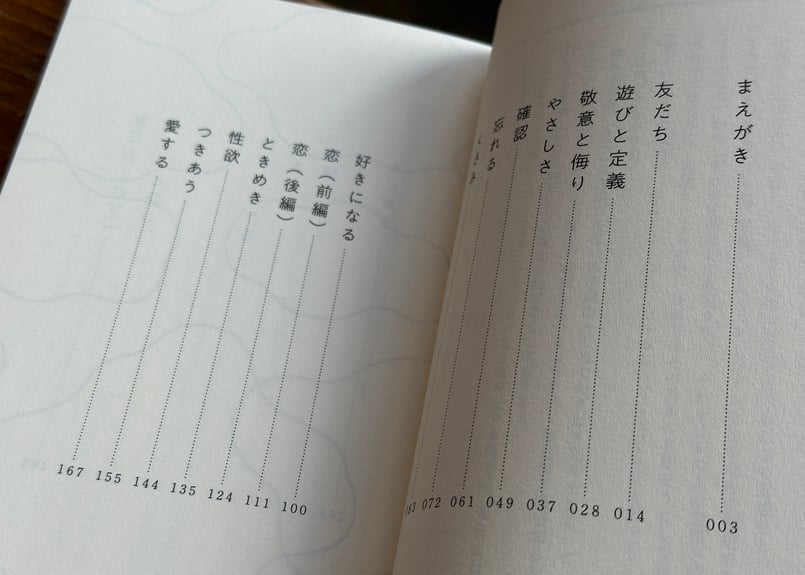 まえがき 003
友だち 014
遊びと定義 028
敬意と侮り 037
やさしさ 049
確認 061
忘れる 072
好きになる 100
恋（前編） 111
恋（後編） 124
ときめき 135
性欲 144
つきあう 155
愛する 167